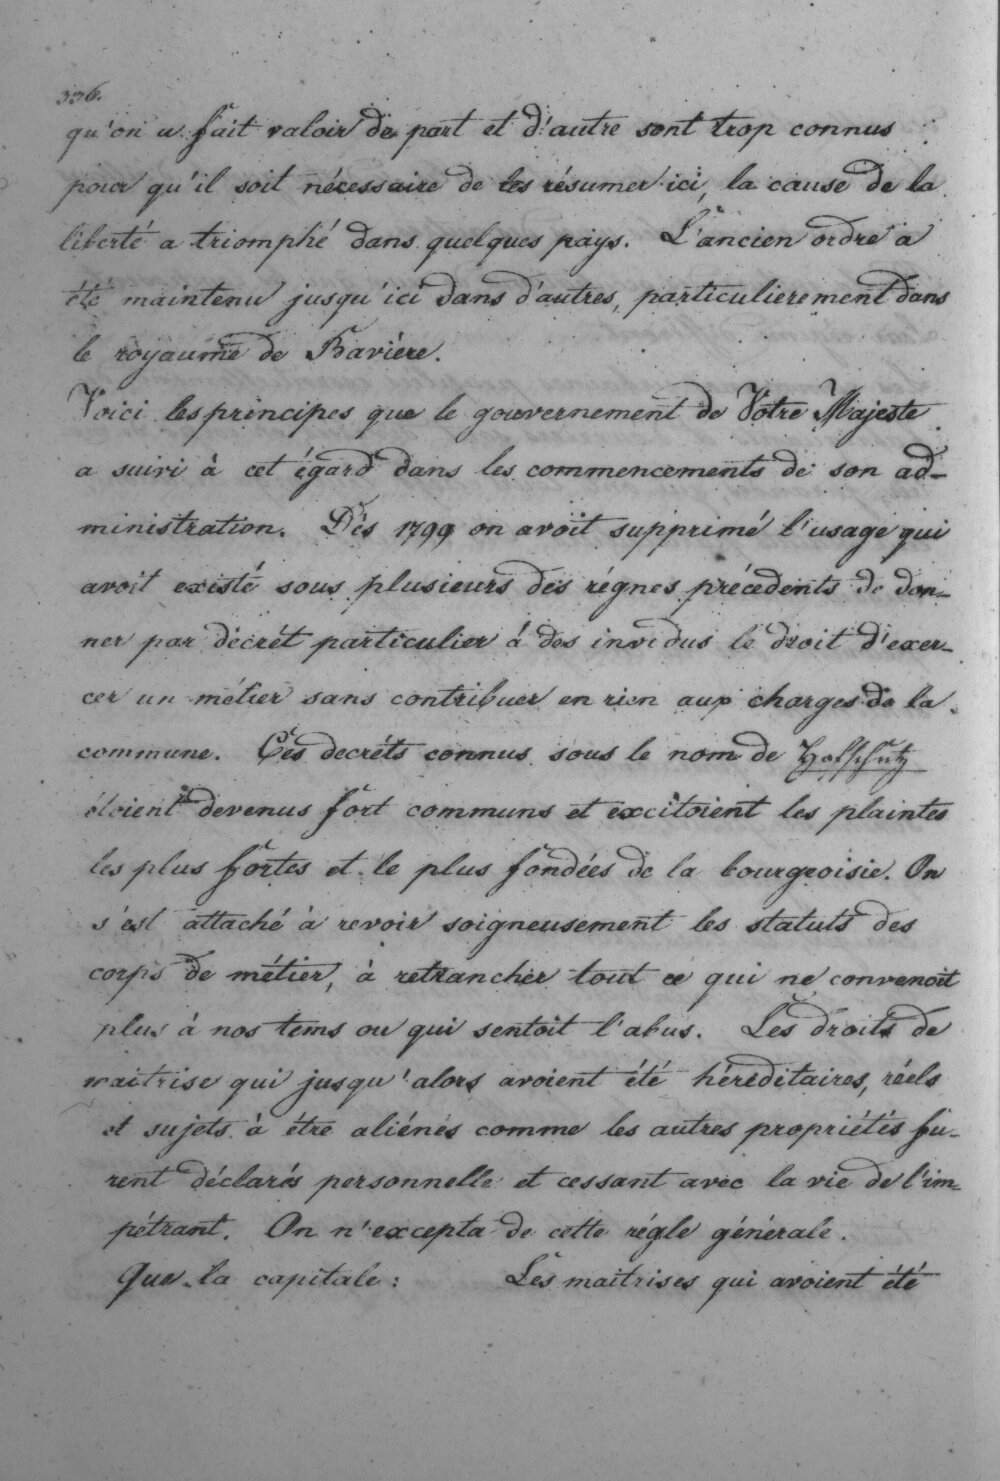 336.
qu'on a fait valoir de part et d'autre sont trop connus
pour qu'il soit nécessaire de les résumer ici, la cause de la
liberté a triomphé dans quelques pays. L'ancien ordre a
été maintenu jusqu'ici dans d'autres, particulierement dans
le royaume de Bavière.
Voici les principes que le gouvernement de Votre Majeste
a suivi à cet égard dans les commencements de son ad-
ministration. Dès 1799 on avoit supprimé l'usage qui
avoit existé sous plusieurs des régnes précédents de don-
ner par décrét particulier à des invidus le droit d'exer-
cer un métier sans contribuer en rien aux charges de la
commune. Ces decréts connus sous le nom de Hofschutz
étoient devenus fort communs et excitoient les plaintes
les plus fortes et le plus fondées de la bourgeoisie. On
s'est attaché à revoir soigneusement les statuts des
corps de métier, à retrancher tout ce qui ne convenoit
plus à nos tems ou qui sentoit l'abus. Les droits de
maitrise qui jusqu'alors avoient été héréditaires, réels
et sujets à étre aliénés comme les autres propriétés fu-
rent déclarés personnelle et cessant avec la vie de l'im-
pétrant. On n'excepta de cette régle générale.
Que la capitale: Les maitrises qui avoient été